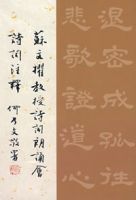 退密成容隱
悲歌證道心
蘇文擢教授詩詞朗誦會
詩詞注釋
何乃文敬署